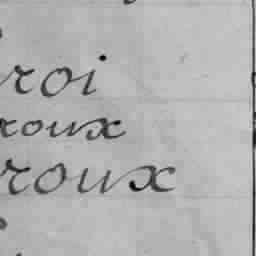 roi
roux
roux